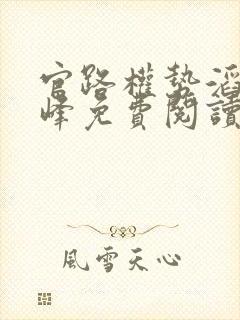 官路權勢滔
峰免費閱讀
風雪天心